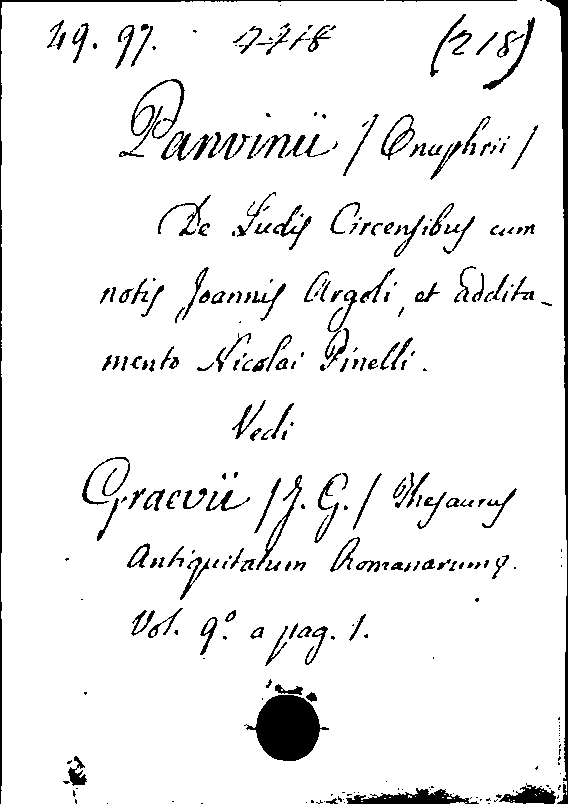 49. 97. 7718 (218)
Panvinii / Onuphrii /
De Ludis Circensibus cum
notis Joannis Argoli, et addita-
mento Nicolai Pinelli.
Vedi
Graevii / J. G. / Thesaurus
Antiquitatum Romanarum.
Vol. 9º. a pag. 1.